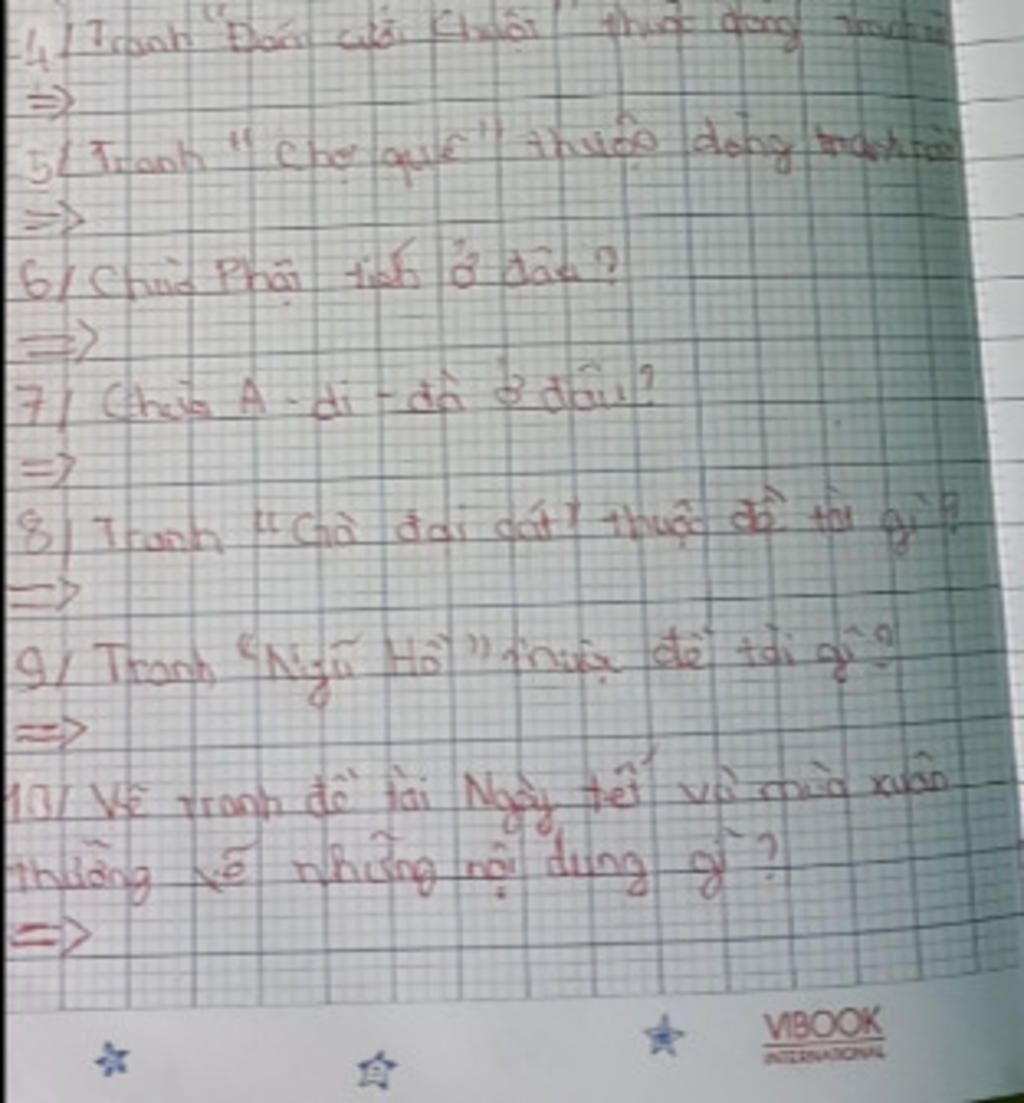 4/ Tranh "Đám cưới Chuột" thuộc dòng tranh
=>
5/ Tranh "Chợ quê" thuộc dòng tranh nào
=>
6/ Chùa Phật tích ở đâu?
=>
7/ Chùa A-di-đà ở đâu?
=>
8/ Tranh "Gà đại cát" thuộc đề tài gì?
=>
9/ Tranh "Ngũ Hổ" thuộc đề tài gì?
=>
10/ Vẽ tranh đề tài Ngày tết và mùa xuân
thường vẽ những nội dung gì?
=>
VIBOOK
INTERNATIONAL